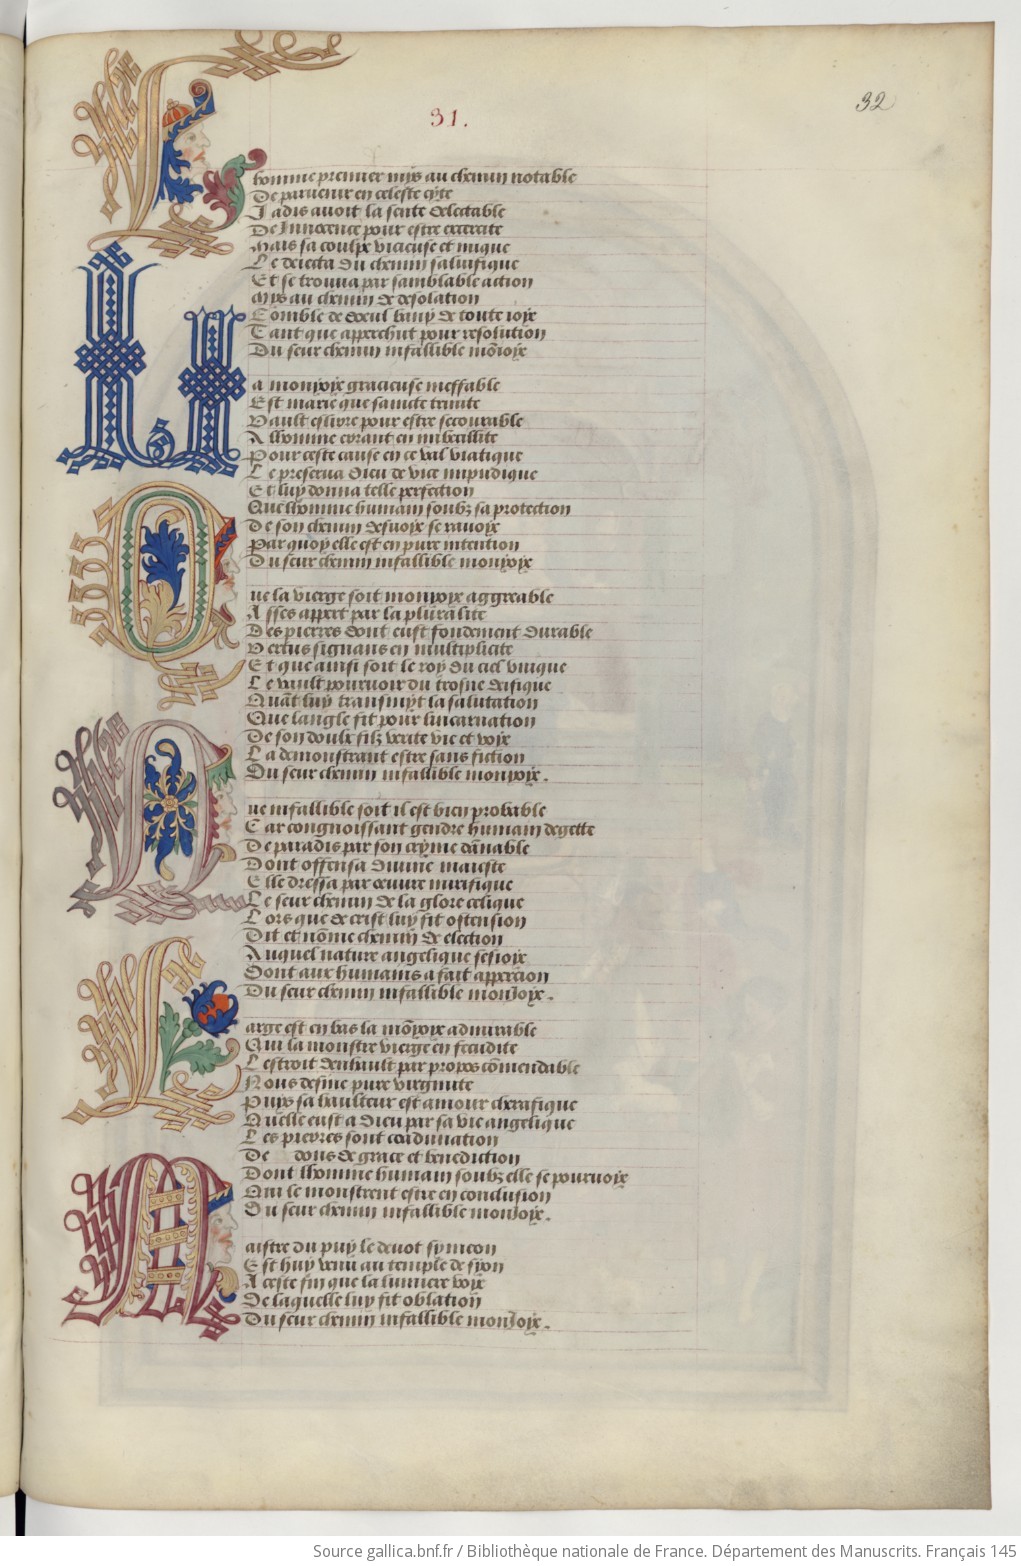 32
31.
Lhomme premier mys au chemin notable
De paruenir en celeste cyte
Jadis auoit la sente delectable
De Innocence pour estre excercite
Mais sa coulpe vicieuse et inique
Le deiecta du chemin saluifique
Et se trouua par samblable action
Mys au chemin de desolation
Comble de doeul bany de toute ioye
Tant que apperchut pour resolution
Du seur chemin infallible mōioye
La monyoye gracieuse ineffable
Est marie que saincte trinite
Vault eslire pour estre secourable
A lhomme errant en imbecillite
Pour ceste cause en ce val viatique
Le preserua dieu de vice impudique
Et luy donna telle perfection
Que lhomme humain soubz sa protection
De son chemin desuoye se rauoye
Par quoy elle est en pure intention
Du seur chemin infallible monyoye
Que la vierge soit monyoye aggreable
Asses appert par la pluralite
Des pierres dont eust fondement durable
Vertus signans en multiplicite
Et que ainsi soit le roy du ciel vnique
Le vault pourueoir du trosne deifique
Quāt luy transmyt la salutation
Que langle fit pour lincarnation
De son doulx filz verite vie et voye
La demonstrant estre sans fiction
Du seur chemin infallible monyoye.
Que infallible soit il est bien probable
Car congnoissant gendre humain degette
De paradis par son cryme dānable
Dont offensa diuine maieste
Elle dressa par oeuure mirifique
Le seur chemin de la glore celique
Lors que de crist luy fit ostension
Dit et nōme chemin de election
Auquel nature angelique sesioye
Dont aux humains a fait apperciōn
Du seur chemin infallible monJoye.
Large est en bas la mōyoye admirable
Qui la monstre vierge en fecudite
Lestroit denhault par propos cōmendable
Nous desine pure virginite
Puys sa haulteur est amour cherafique
Quelle eust a Dieu par sa vie angelique
Les pierres sont coadunation
De dons de grace et benediction
Dont lhomme humain soubz elle se pouruoye
Qui le monstrent estre en conclusion
Du seur chemin infallible monJoye.
Maistre du puy le deuot symeon
Est huy venu au temple de syon
A ceste fin que la lumiere voye
De laquelle luy fit oblation
Du seur chemin infallible monJoye.
Source gallica.bnf.fr / Bibliothèque nationale de France. Département des Manuscrits. Français 145